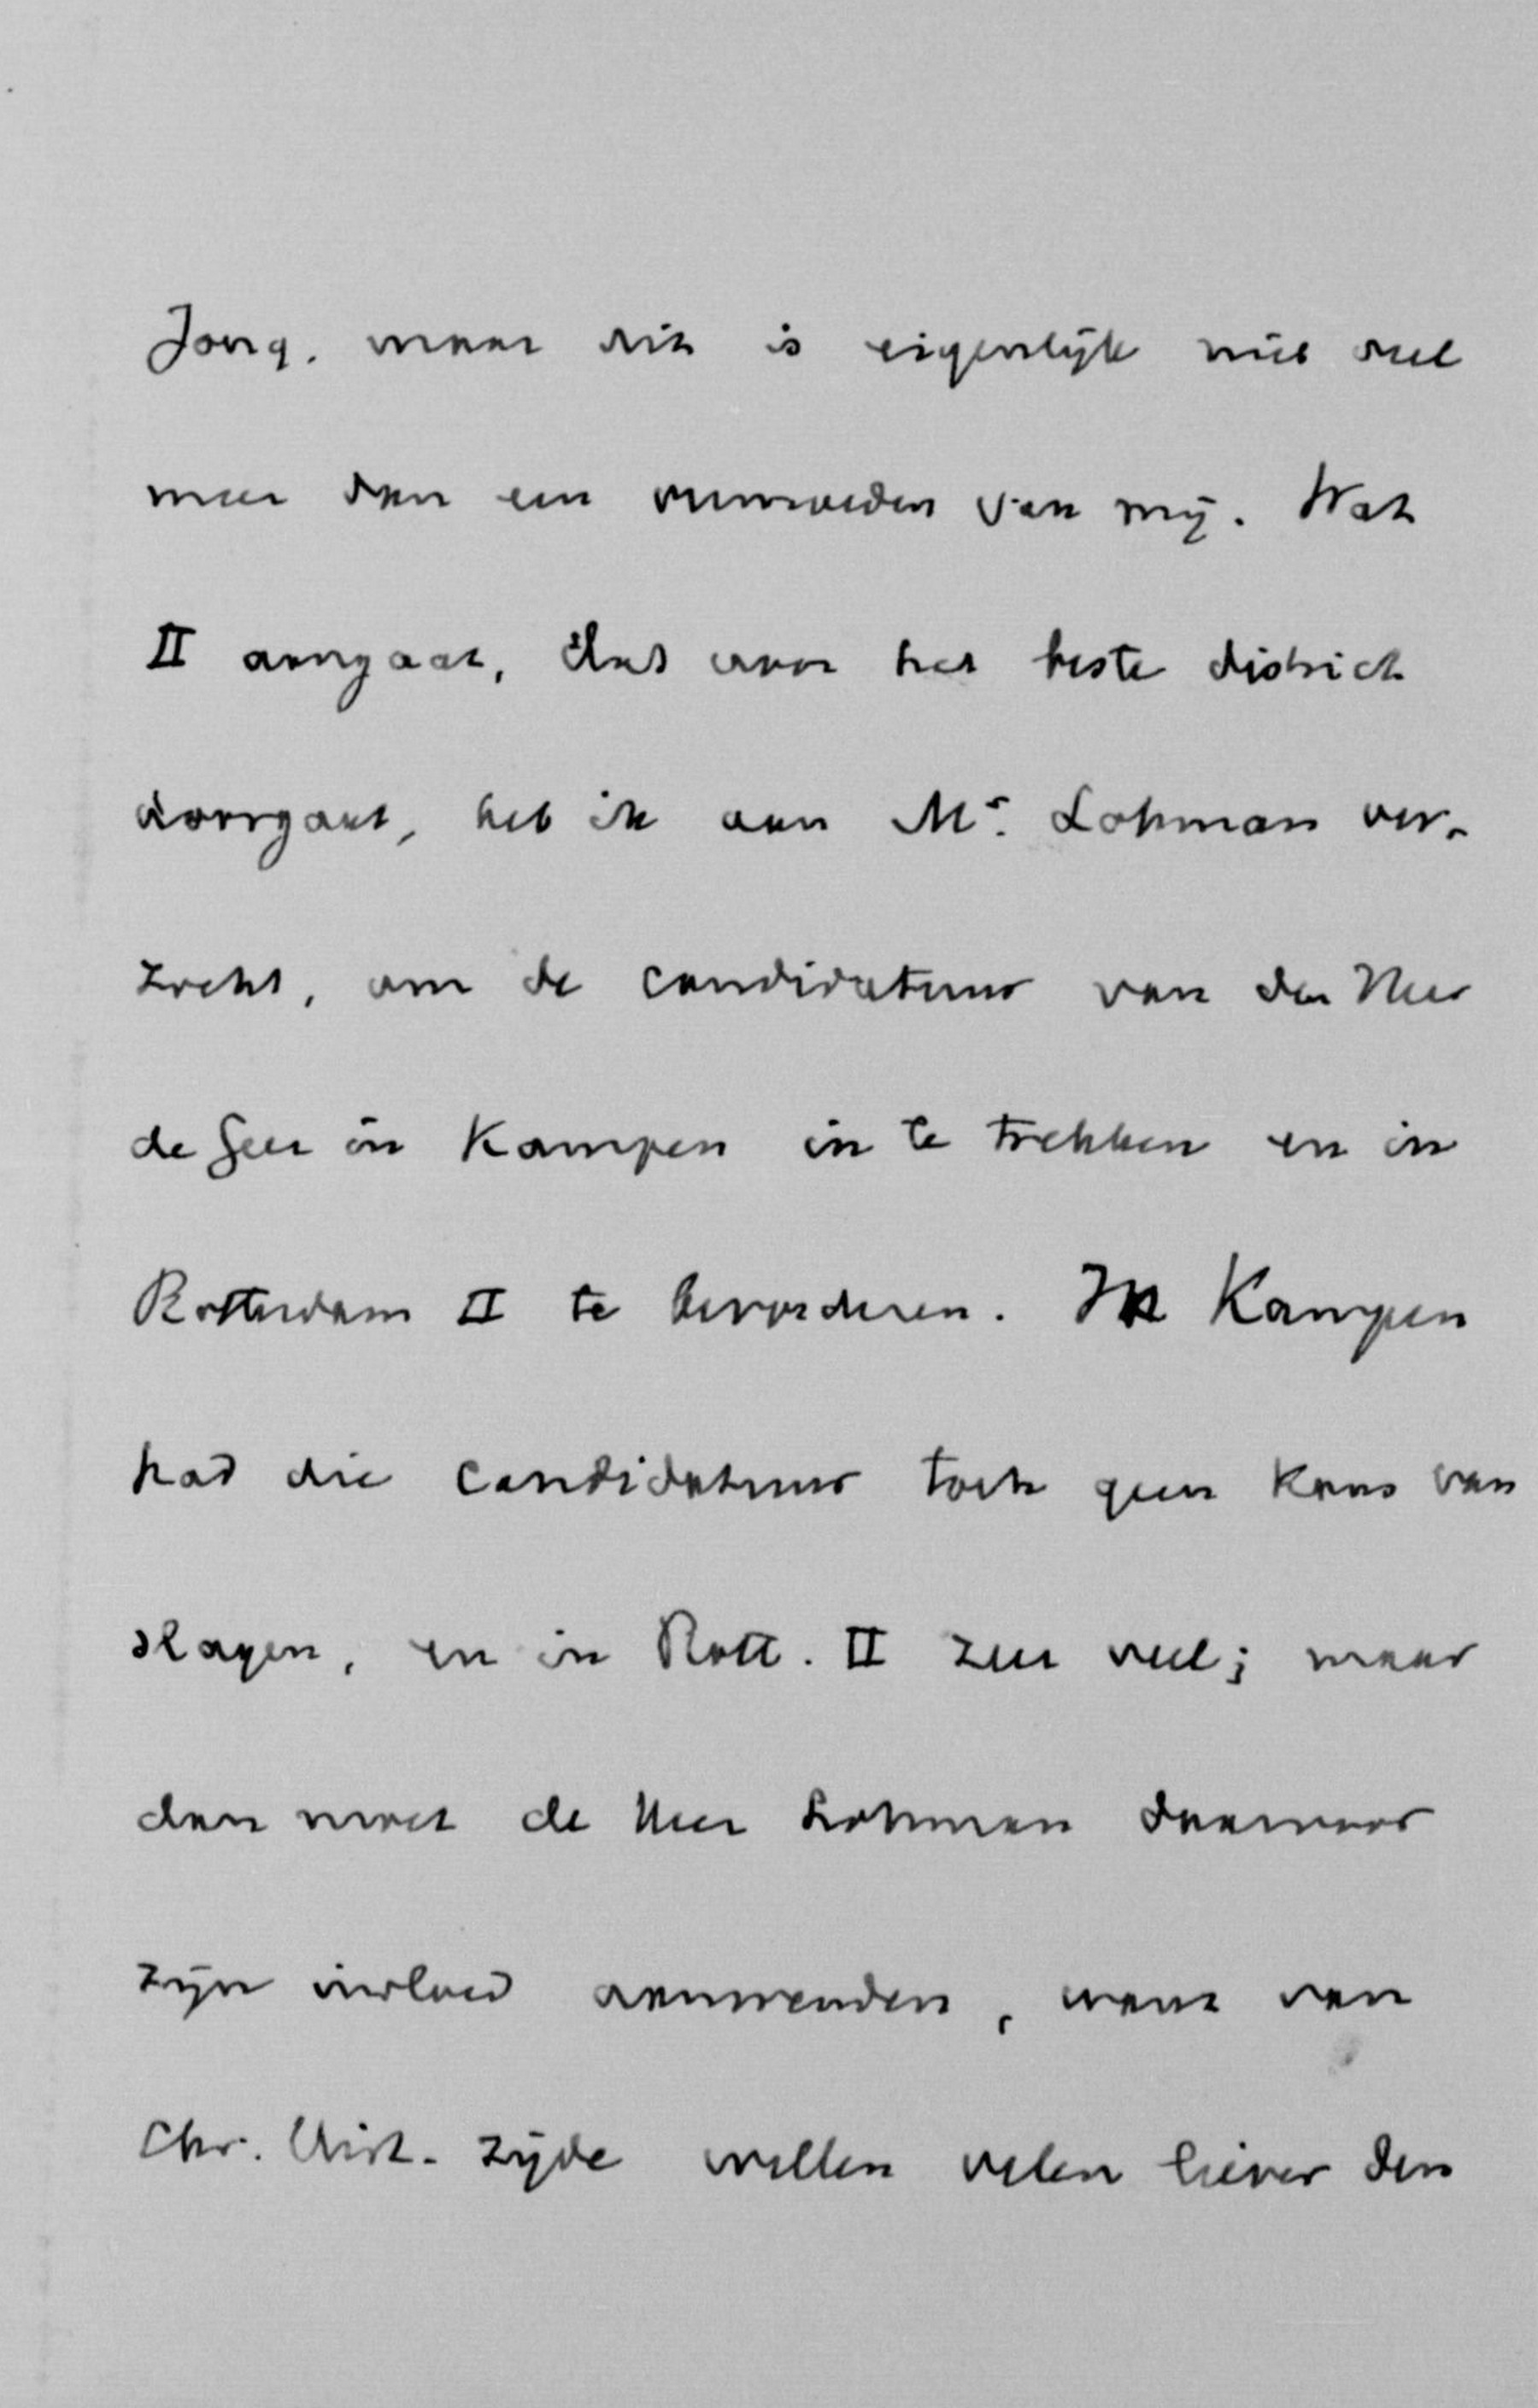 Jong. maar dit is eigenlijk niet veel
meer dan een vermoeden van mij. Wat
II aangaat, dat voor het beste district
doorgaat, heb ik aan Mr. Lohman ver-
zocht, om de candidatuur van den Heer
de Geer in Kampen in te trekken en in
Rotterdam II te bevorderen. In Kampen
had die candidatuur toch geen kans van
slagen, en in Rott. II zeer veel; maar
dan moet de Heer Lohman daarvoor
zijn invloed aanwenden, want van
Chr. Hist. zijde willen velen liever den